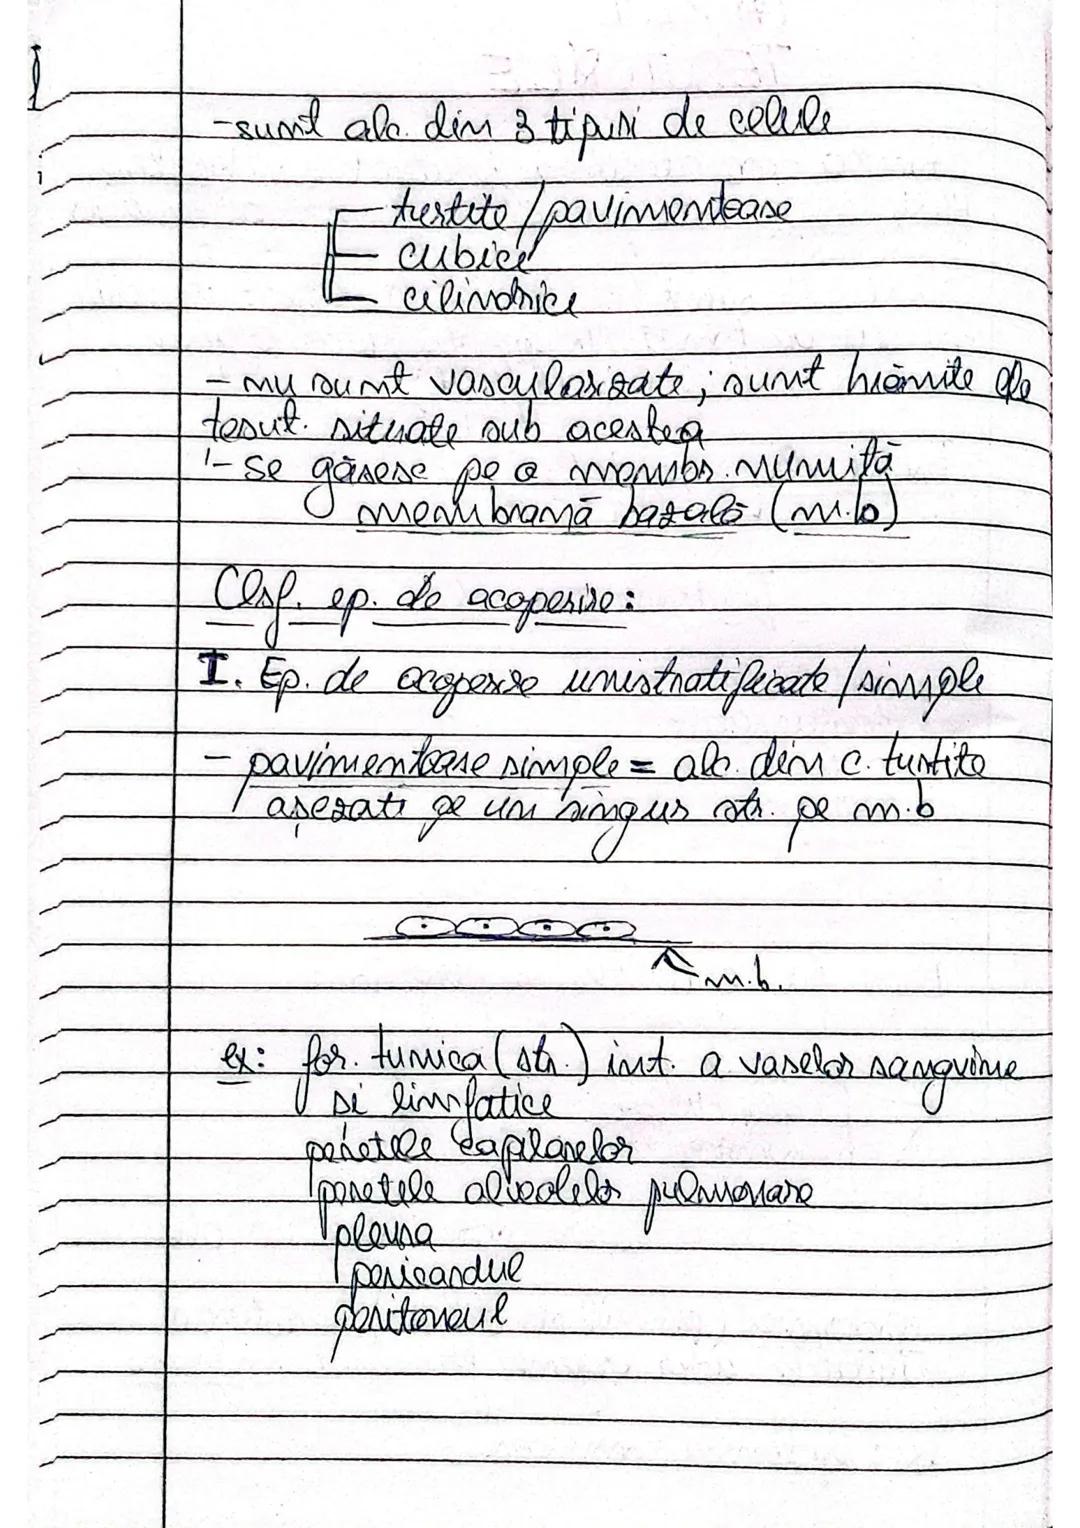 - sunt alc. din 3 tipuri de celule
turtite / pavimentoase
cubice
cilindrice
- nu sunt vascularizate; sunt hrănite de
tesut. situate sub acestea
- se găsesc pe o membr. numită
membrană bazală (m.b)
Clsf. ep. de acoperire:
I. Ep. de acoperire unistratificate / simple
- pavimentoase simple = alc. din c. turtite
așezate pe un singur str. pe m.b
m.b.
ex: for. tunica (str.) int. a vaselor sanguine
si limfatice
peretele capilarelor
peretele alveolelor pulmonare
pleura
pericardul
peritoneul